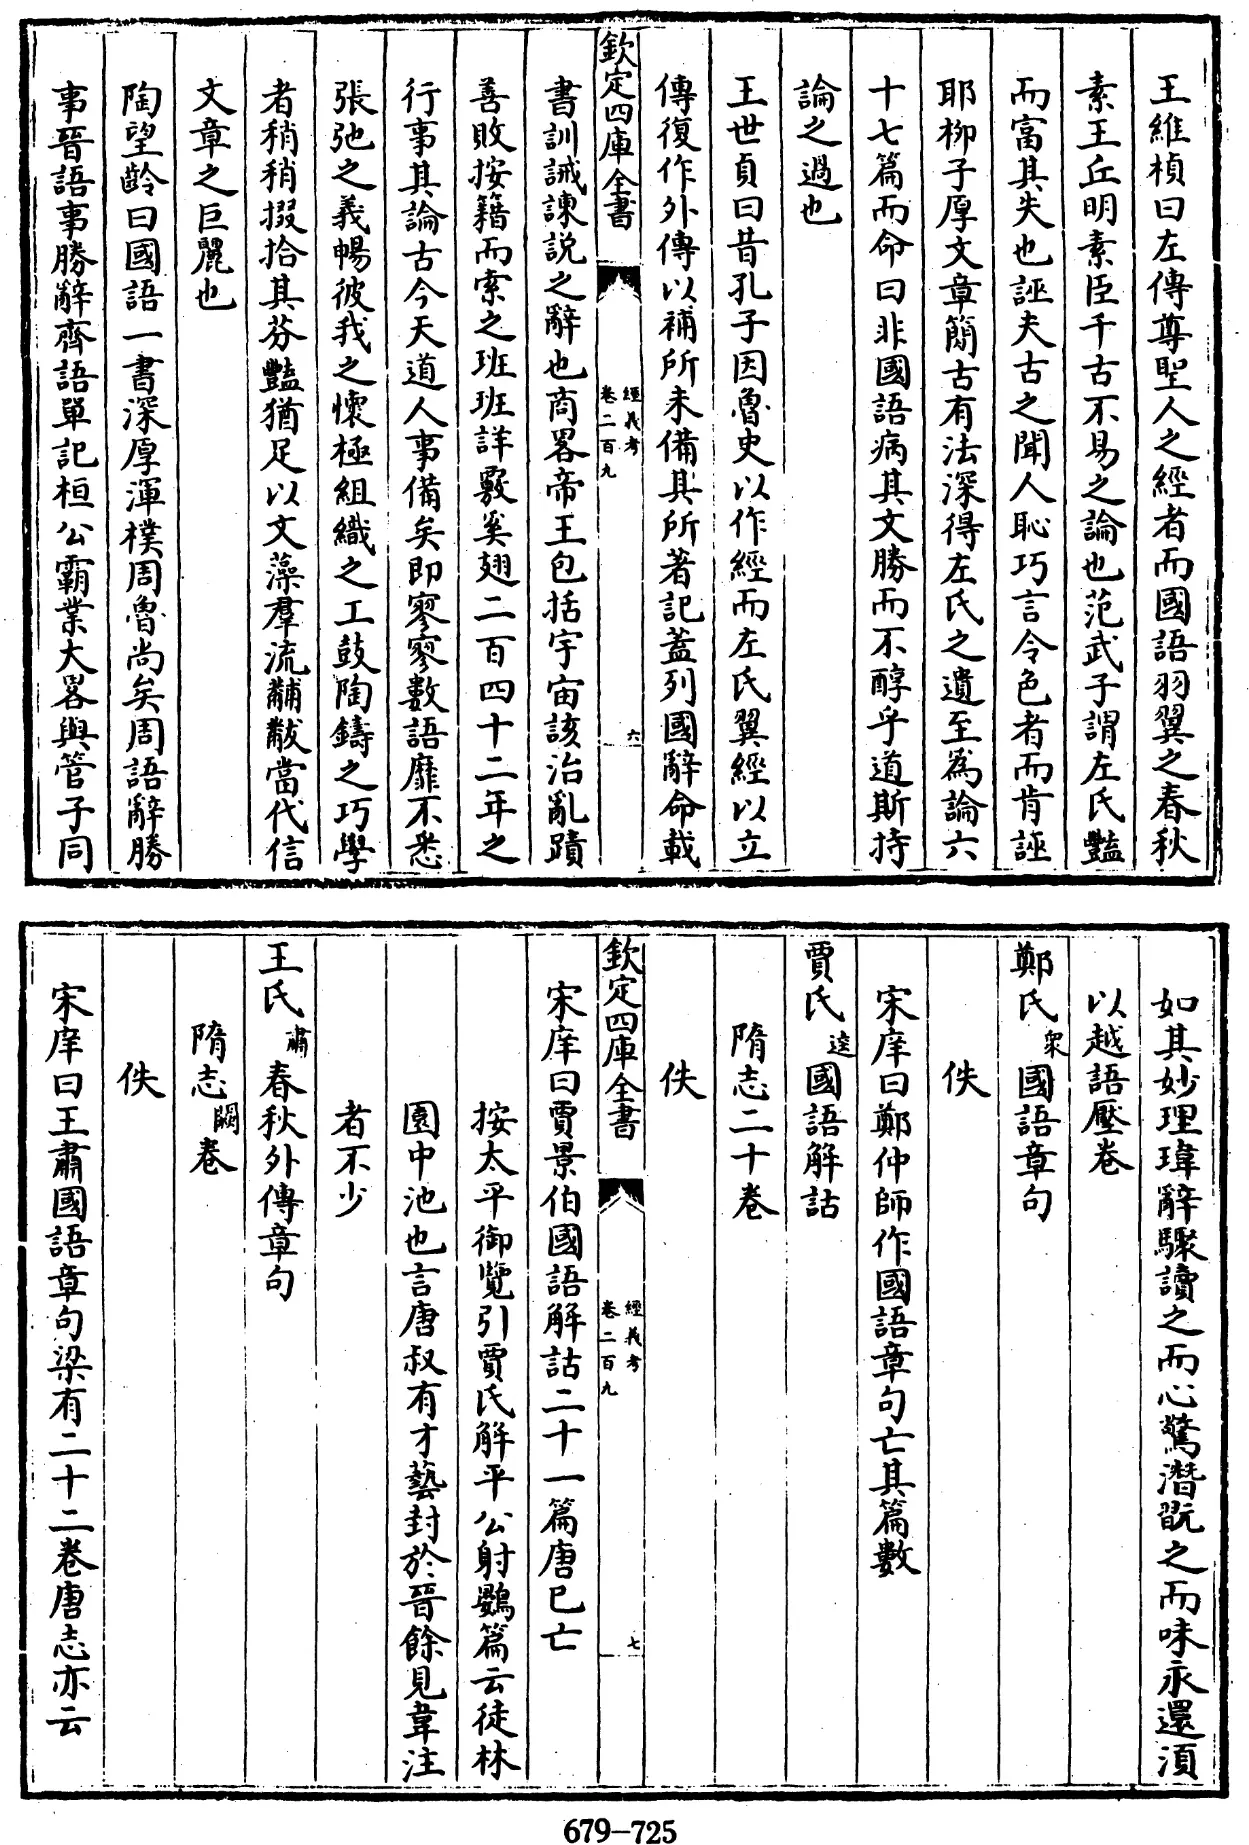 王維楨曰左傳尊聖人之經者而國語羽翼之春秋
素王丘明素臣千古不易之論也范武子謂左氏豔
而富其失也誣夫古之聞人恥巧言令色者而肯誣
耶柳子厚文章簡古有法深得左氏之遺至為論六
十七篇而命曰非國語病其文勝而不醇乎道斯持
論之過也
王世貞曰昔孔子因魯史以作經而左氏翼經以立
傳復作外傳以補所未備其所著記蓋列國辭命載
欽定四庫全書
經義考
卷二百九
六
書訓誡諫說之辭也商畧帝王包括宇宙該治亂蹟
善敗按籍而索之班班詳覈奚翅二百四十二年之
行事其論古今天道人事備矣即寥寥數語靡不悉
張弛之義暢彼我之懷極組織之工鼓陶鑄之巧學
者稍稍掇拾其芬豔猶足以文藻羣流黼黻當代信
文章之巨麗也
陶望齡曰國語一書深厚渾樸周魯尚矣周語辭勝
事晉語事勝辭齊語單記桓公霸業大畧與管子同
如其妙理瑋辭驟讀之而心驚潛翫之而味永還湏
以越語壓卷
鄭氏衆國語章句
佚
宋庠曰鄭仲師作國語章句亡其篇數
賈氏逵國語解詁
隋志二十卷
佚
欽定四庫全書
經義考
卷二百九
七
宋庠曰賈景伯國語解詁二十一篇唐已亡
按太平御覽引賈氏解平公射鷃篇云徒林
園中池也言唐叔有才藝封於晉餘見韋注
者不少
王氏肅春秋外傳章句
隋志闕卷
佚
宋庠曰王肅國語章句梁有二十二卷唐志亦云
679-725